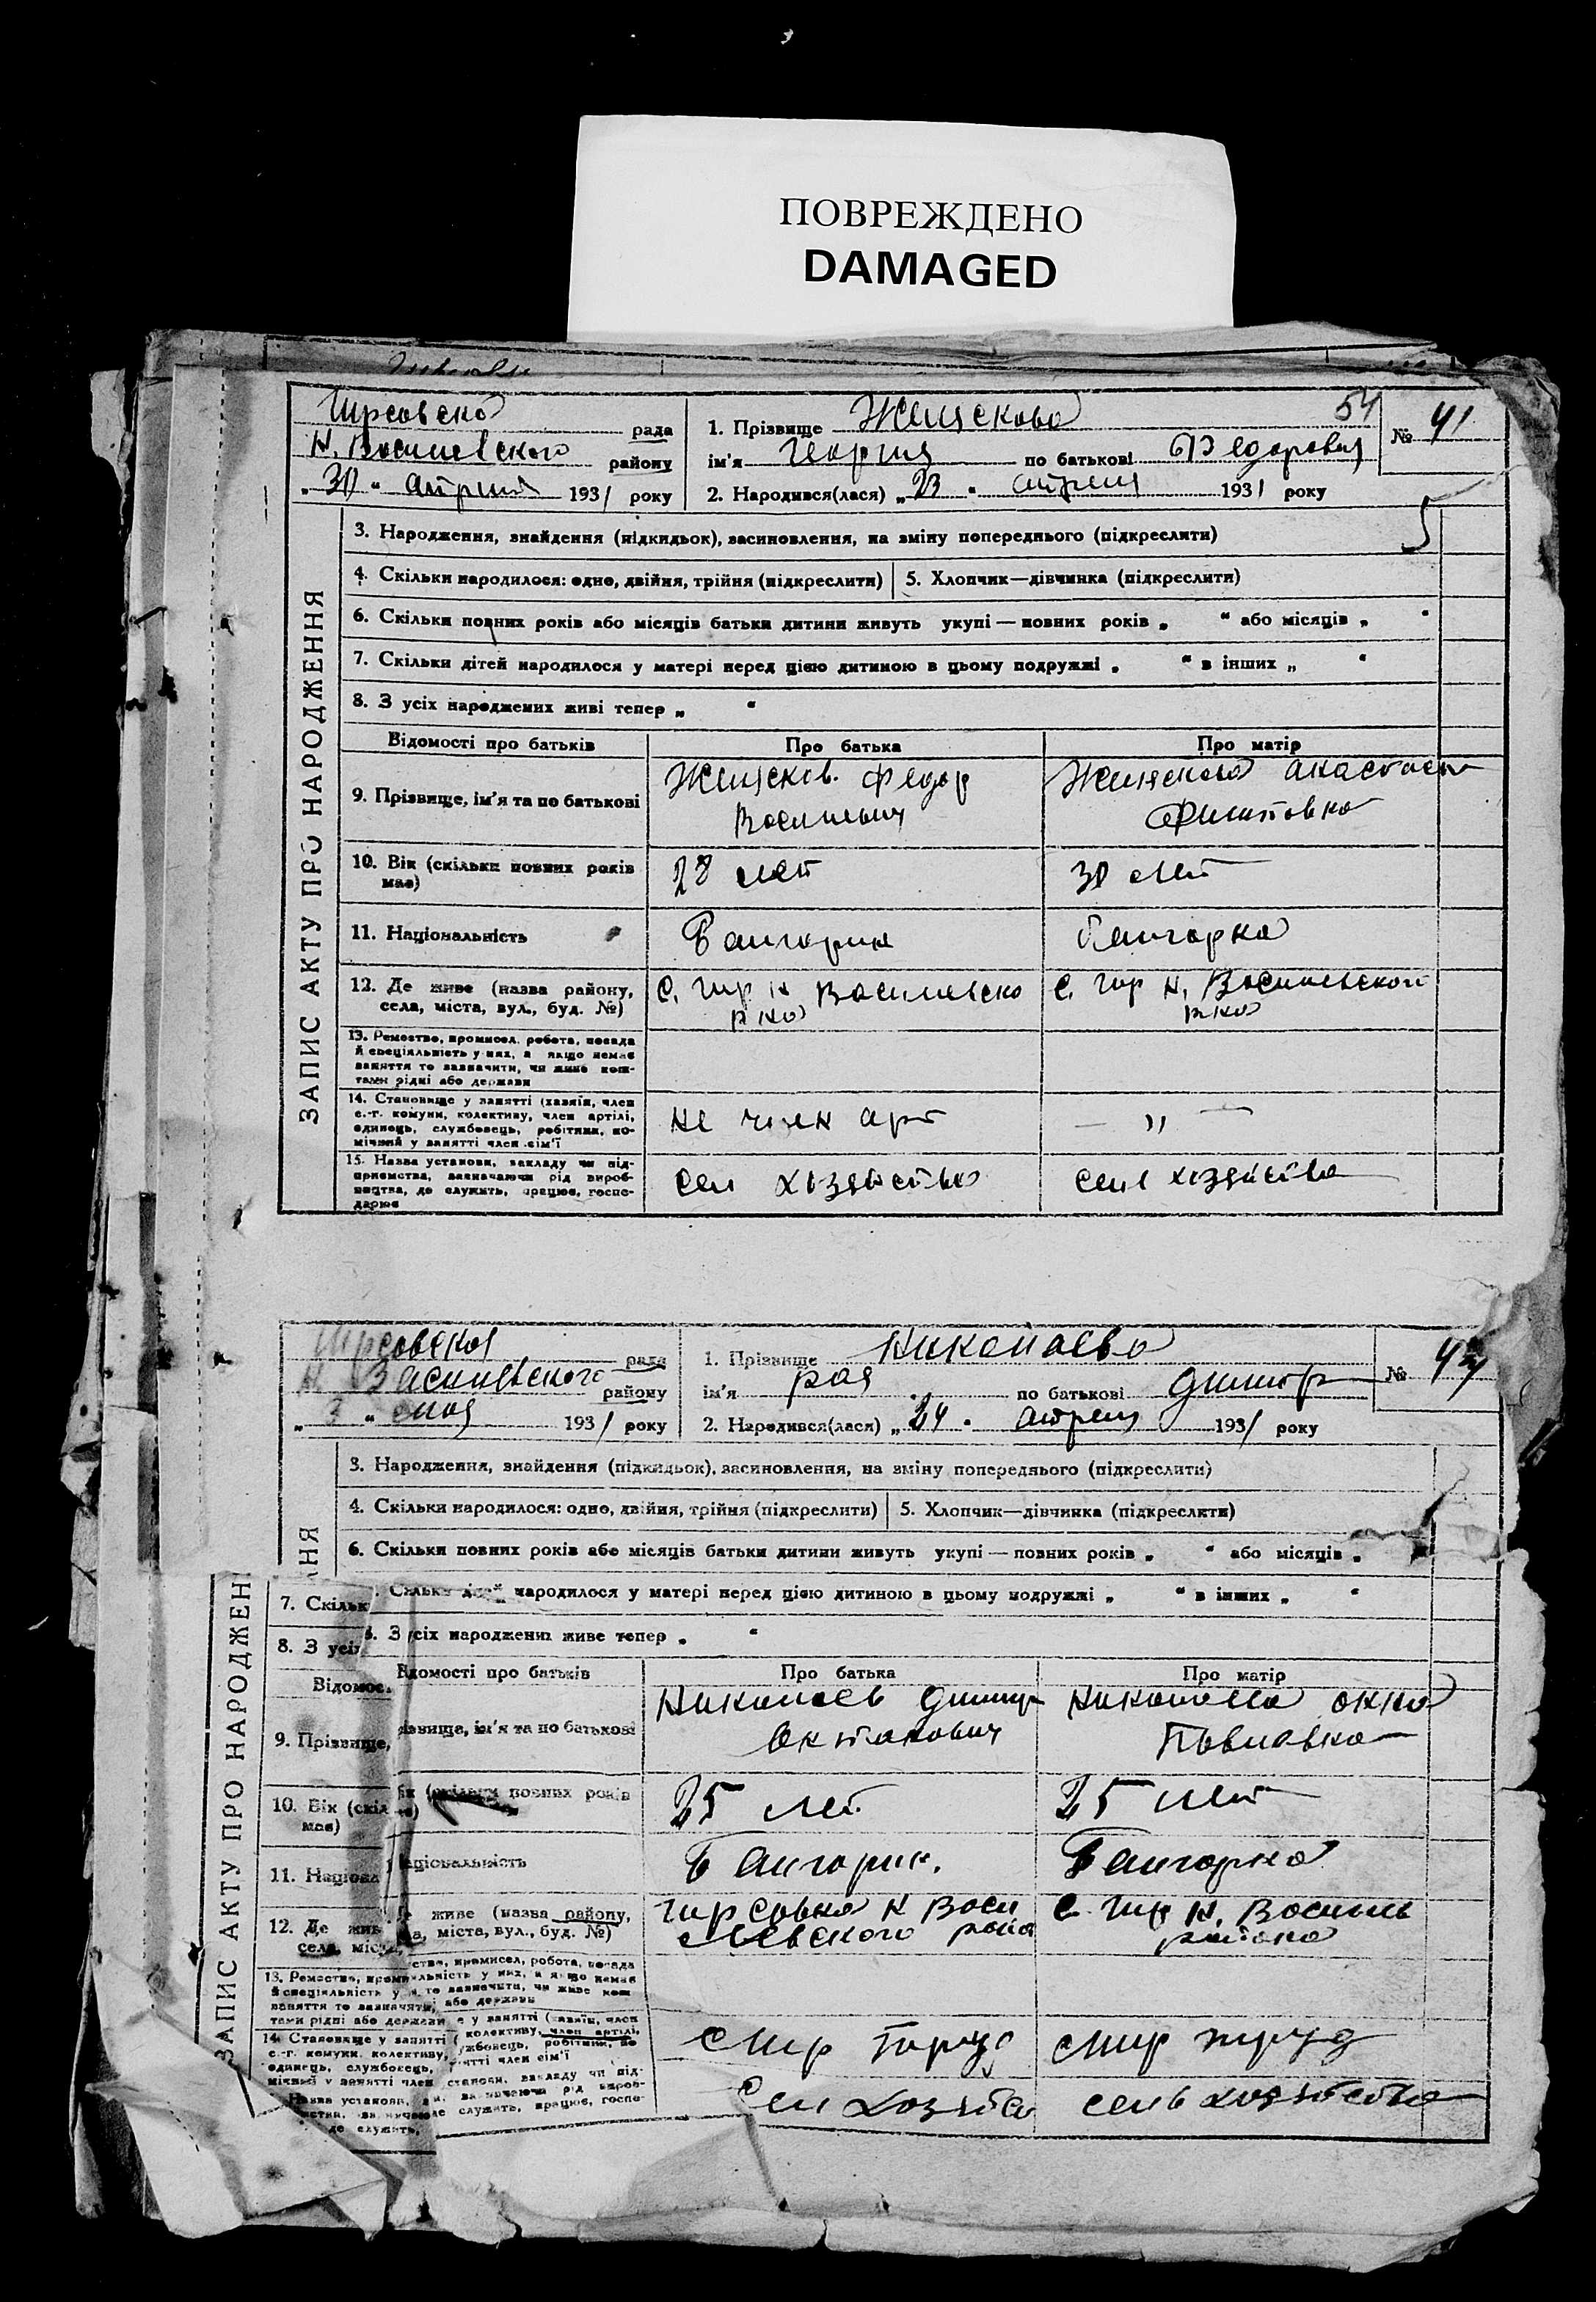 ПОВРЕЖДЕНО
DAMAGED
54
Гирсовско рада
Н. Василевского району
„ 30 “ апреля 1931 року
1. Прізвище Желяскова
ім’я Георгия по батькові Федорович
2. Народився(лася) „ 23 “ апреля 1931 року
№ 41
ЗАПИС АКТУ ПРО НАРОДЖЕННЯ
3. Народження, знайдення (підкидьок), засиновлення, на зміну попереднього (підкреслити)
4. Скільки народилося: одно, двійня, трійня (підкреслити) 5. Хлопчик—дівчинка (підкреслити)
6. Скільки повних років або місяців батьки дитини живуть укупі — повних років „ “ або місяців „ “
7. Скільки дітей народилося у матері перед цією дитиною в цьому подружжі „ “ в інших „ “
8. З усіх народжених живі тепер „ “
Відомості про батьків Про батька Про матір
9. Прізвище, ім’я та по батькові
Желясков Федор
Василевич
Желяскова Анастаси
Филиповна
10. Вік (скільки повних років
має)
28 лет
30 лет
11. Національність
Балгарин
Балгарка
12. Де живе (назва району,
села, міста, вул., буд. №)
с. Гир Н Василевско
рко
с. Гир Н. Василевской
рко
13. Ремество, промисел, робота, посада
й спеціяльність у них, а якщо немає
заняття то зазначити, чи живе кош-
тами рідні або держави
14. Становище у занятті (хазяїн, член
с.-г. комуни, колективу, член артілі,
одинець, службовець, робітник, по-
мічний у занятті член сім’ї
не член арт
— „ —
15. Назва установи, закладу чи під-
приємства, зазначаючи рід вироб-
ництва, де служить, працює, госпо-
дарює
сел хозяйство
сель хозяйство
Гирсовской рада
Н Василевского району
„ 3 “ мая 1931 року
1. Прізвище Николаева
ім’я рая по батькові Димитр
2. Народився(лася) „ 24 “ апреля 1931 року
№ 42
3. Народження, знайдення (підкидьок), засиновлення, на зміну попереднього (підкреслити)
4. Скільки народилося: одно, двійня, трійня (підкреслити) 5. Хлопчик—дівчинка (підкреслити)
6. Скільки повних років або місяців батьки дитини живуть укупі — повних років „ “ або місяців „
7. Скільк
народилося у матері перед цією дитиною в цьому подружжі „ “ в інших „ “
8. З усіх
З усіх народжених живе тепер „ “
Відомості про батьків Про батька Про матір
9. Прізвище, ім’я та по батькові
Николаев Димитр
Николаева Анна
Павлавна
10. Вік (скіл
має)
повних років
25 лет
25 лет
11. Націона
Національність
Балгарин.
Балгарка
12. Де жив
села, міста,
живе (назва району,
міста, вул., буд. №)
Гирсовка Н Васи
левского района
с. Гир Н. Василь
района
ЗАПИС АКТУ ПРО НАРОДЖЕН
13. Ремество, пром
й спеціяльність у
заняття то зазначити,
тами рідні або держави
14. Становище у занятті (
с.-г. комуни, колективу,
одинець, службовець,
мічний у занятті член
член артілі,
службовець, робітник, по
занятті член сім’ї
Сел хозяйсо
сель хозяйство
Назва установи,
де служить,
служить, працює, госпо-